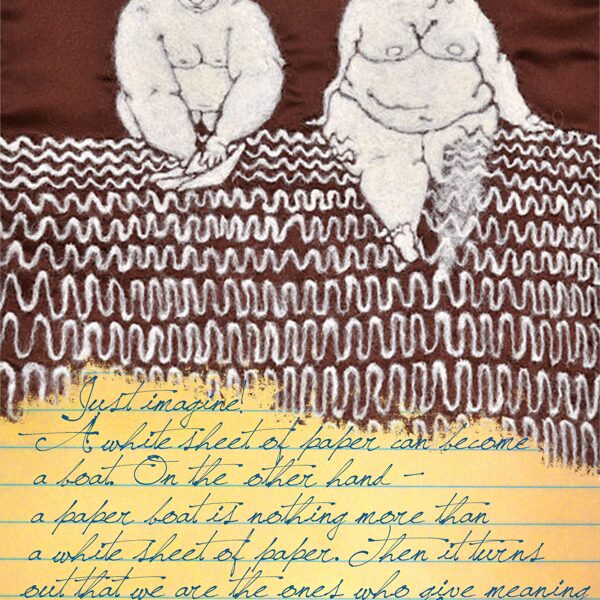 Just imagine!
A white sheet of paper can become
a boat. On the other hand -
a paper boat is nothing more than
a white sheet of paper. Then it turns
out that we are the ones who give meaning